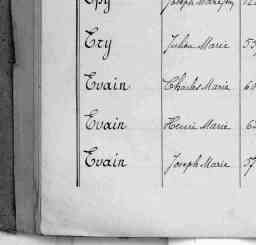 Epy Joseph Marie
Ery Julien Marie 55
Evain Charles Marie 60
Evain Henri Marie 62
Evain Joseph Marie 57